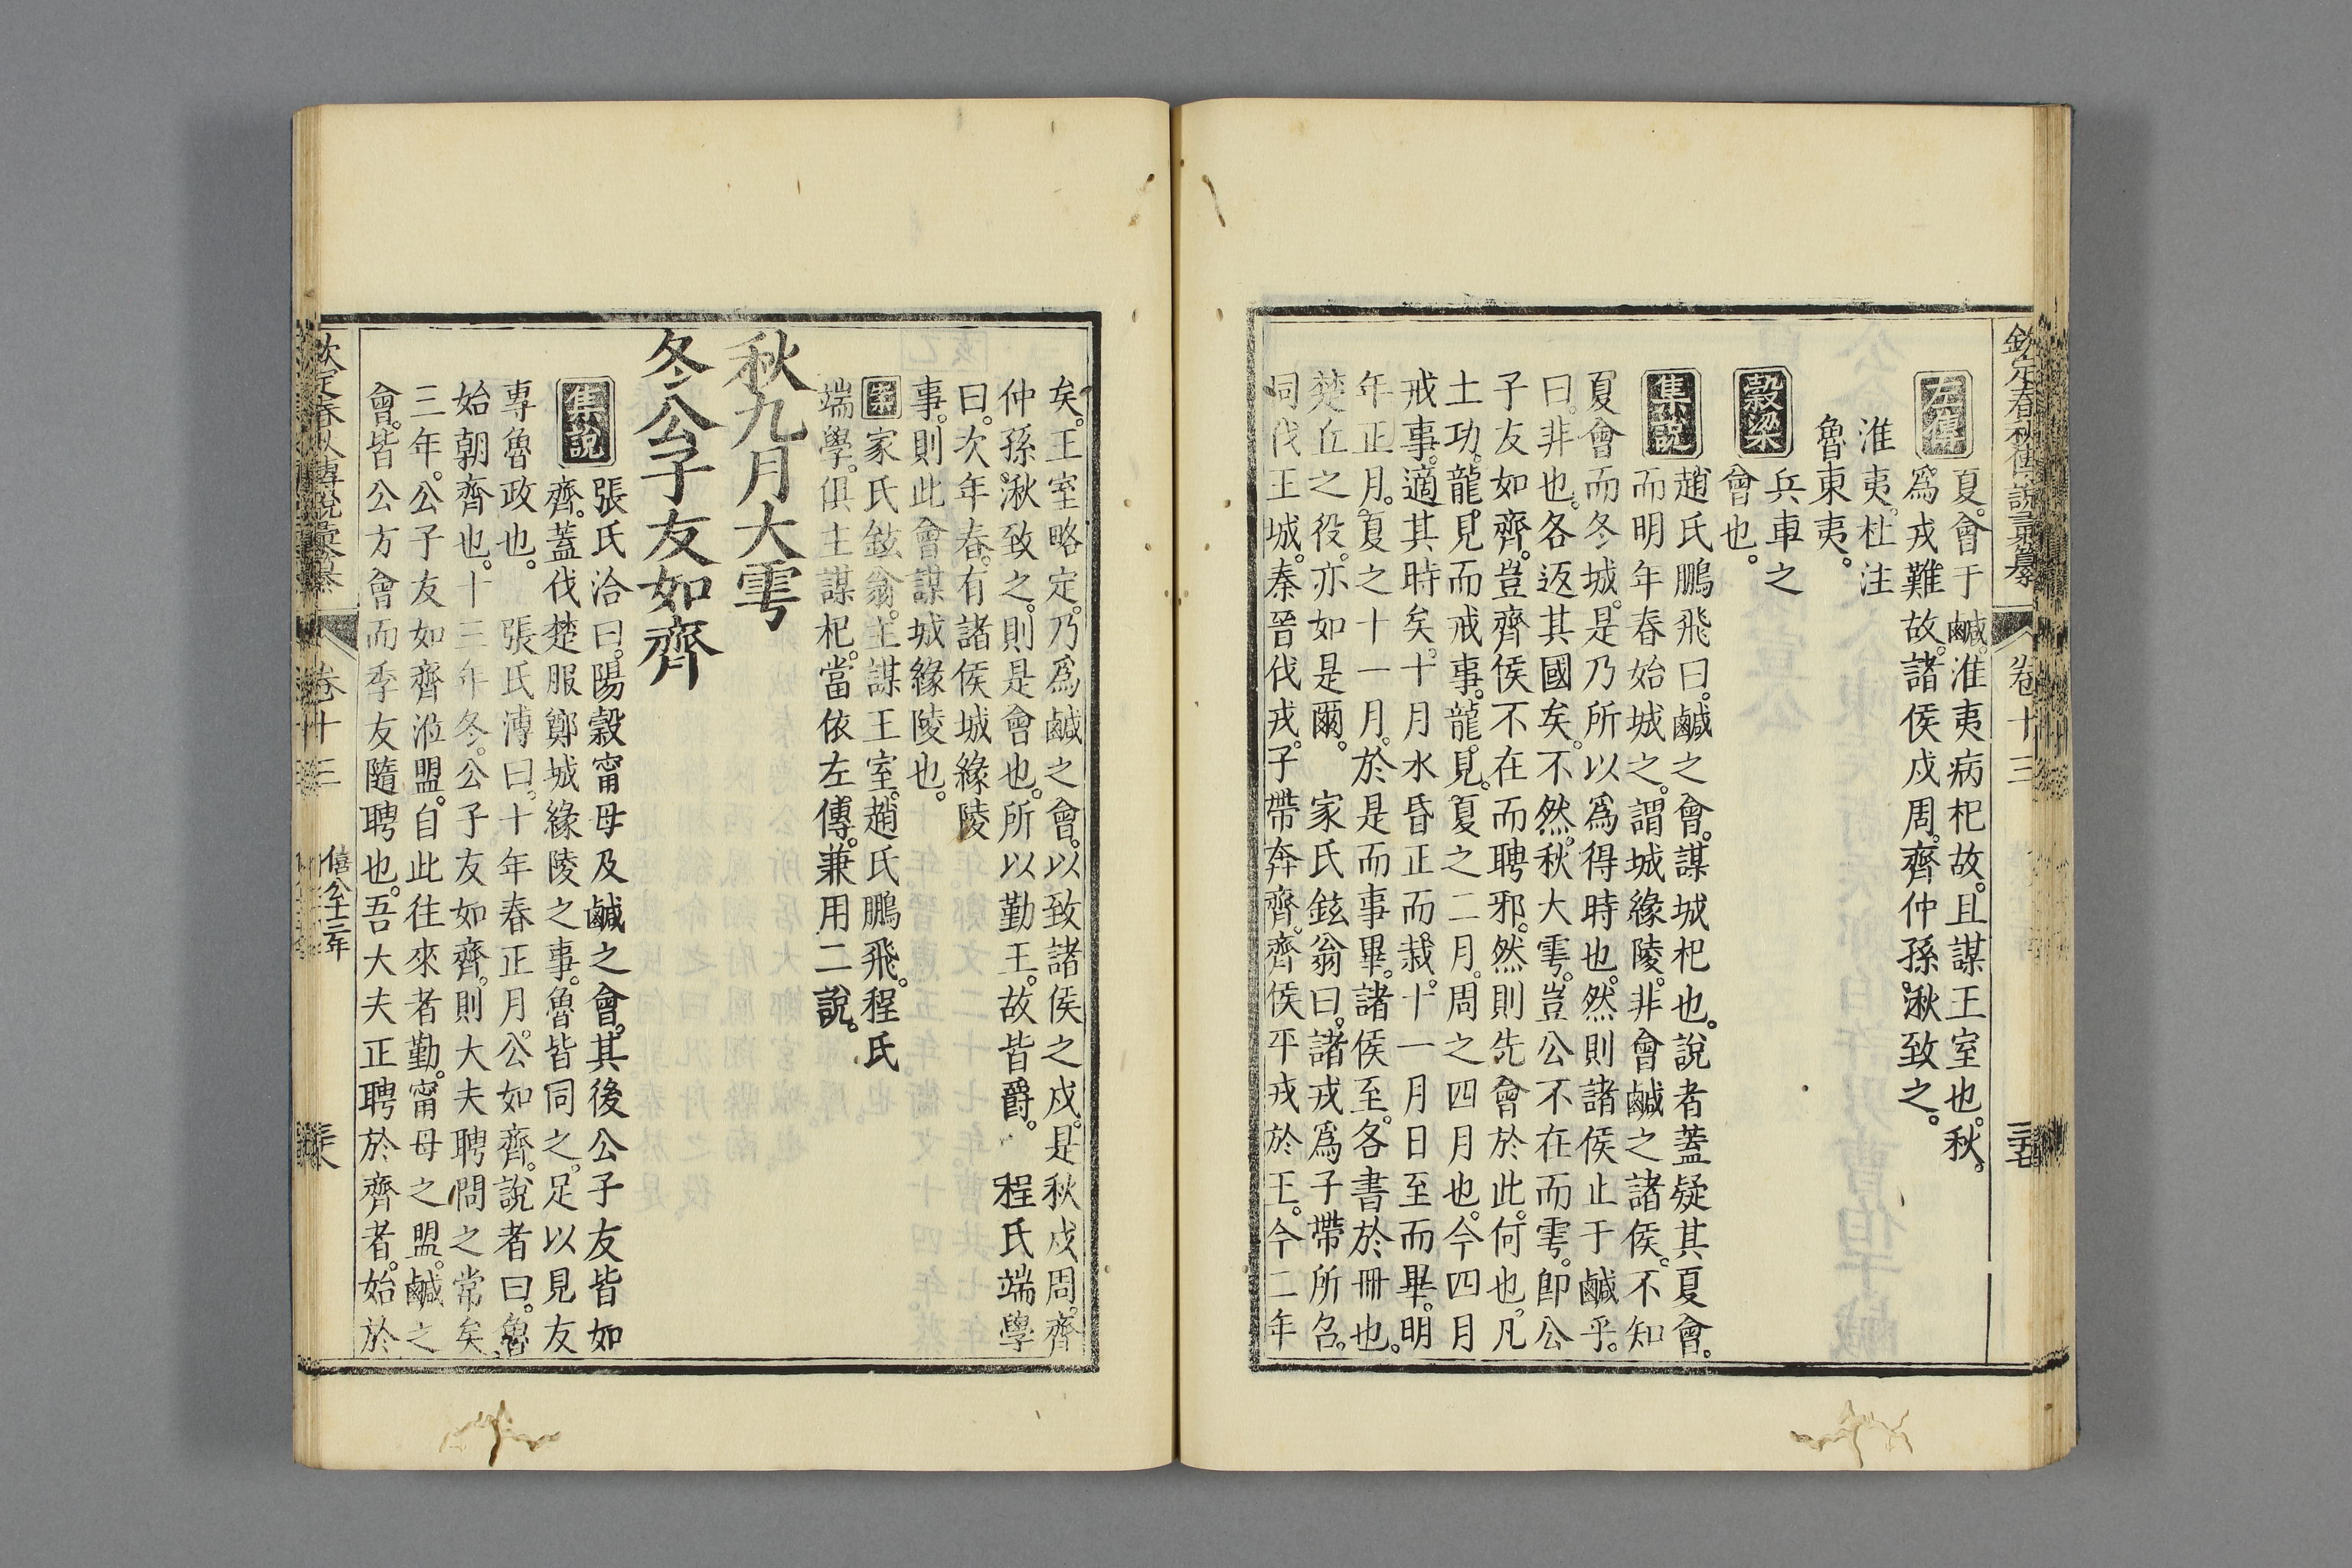 欽定春秋傳說彙纂 卷十三
左傳 夏。會于鹹。淮夷病杞故。且謀王室也。秋。
爲戎難故。諸侯戍周。齊仲孫。湫致之。
淮夷。杜注
魯東夷。
穀梁 兵車之
會也。
集說 趙氏鵬飛曰。鹹之會。謀城杞也。說者蓋疑其夏會。
而明年春始城之。謂城緣陵。非會鹹之諸侯。不知
夏會而冬城。是乃所以爲得時也。然則諸侯止于鹹乎。
曰。非也。各返其國矣。不然。秋大雩。豈公不在而雩。卽公
子友如齊。豈齊侯不在而聘邪。然則先會於此。何也。凡
土功。龍見而戒事。龍見。夏之二月。周之四月也。今四月
戒事。適其時矣。十月水昏正而栽。十一月日至而畢。明
年正月。夏之十一月。於是而事畢。諸侯至。各書於冊也。
楚丘之役。亦如是爾。 家氏鉉翁曰。諸戎爲子帶所召。
同伐王城。秦晉伐戎。子帶奔齊。齊侯平戎於王。今二年
矣。王室略定。乃爲鹹之會。以致諸侯之戍。是秋戍周。齊
仲孫。湫致之。則是會也。所以勤王。故皆爵。 程氏端學
曰。次年春。有諸侯城緣陵
事。則此會謀城緣陵也。
案 家氏鉉翁。主謀王室。趙氏鵬飛。程氏
端學。俱主謀杞。當依左傳。兼用二說。
秋九月大雩
冬公子友如齊
集說 張氏洽曰。陽穀甯母及鹹之會。其後公子友皆如
齊。蓋伐楚服鄭城緣陵之事。魯皆同之。足以見友
專魯政也。 張氏溥曰。十年春正月。公如齊。說者曰。魯
始朝齊也。十三年冬。公子友如齊。則大夫聘問之常矣。
三年。公子友如齊涖盟。自此往來者勤。甯母之盟。鹹之
會。皆公方會而季友隨聘也。吾大夫正聘於齊者。始於
欽定春秋傳說彙纂 卷十三 僖公十三年